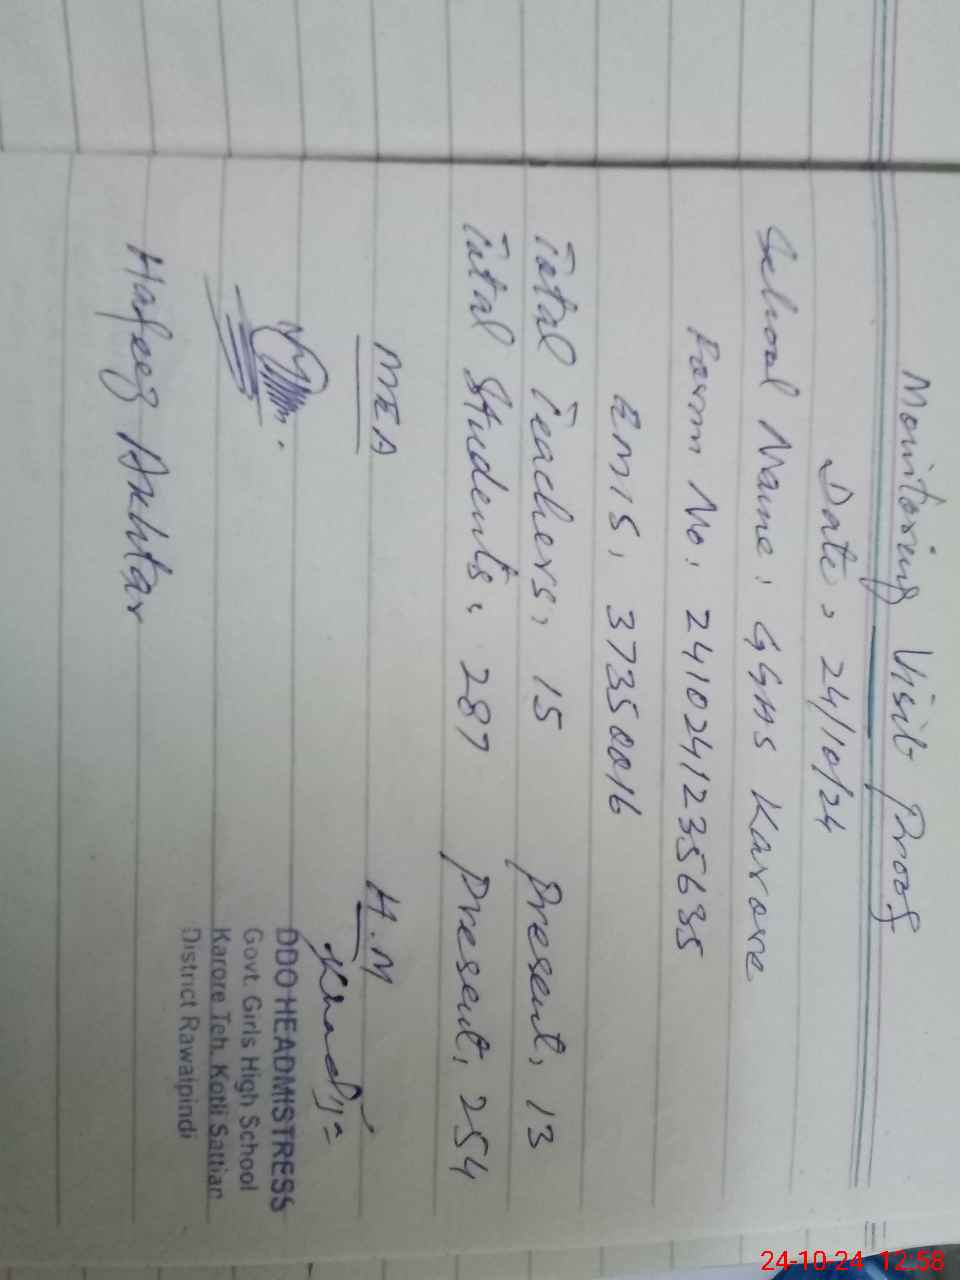 Monitoring Visit Proof
Date, 24/10/24
School Name: GGHS Karore
Form No: 2410241235635
EMIS, 37350016
Total Teachers, 15 Present, 13
Total Students, 287 Present, 254
MEA H.M
Khadija
DDO HEADMISTRESS
Govt. Girls High School
Karore Teh. Kotli Sattian
District Rawalpindi
Hafeez Akhtar
24-10-24 12:58